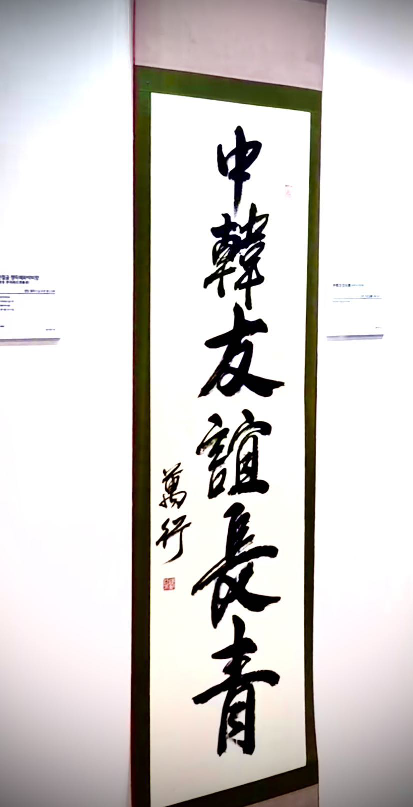 中韓友誼長青
萬行